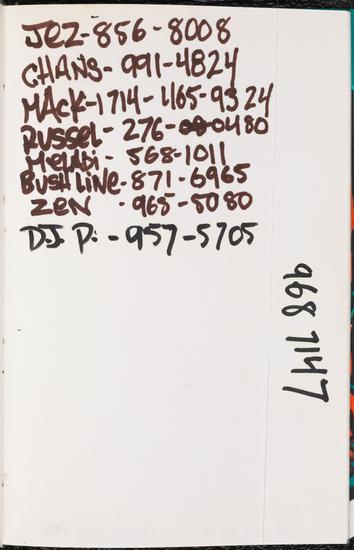 JEZ-856-8008
CHANS-991-4824
MACK-1714-465-9324
RUSSEL-276-0480
MELADI-568-1011
BUSH LINE-871-6965
ZEN -965-5080
D.J. P: -957-5705
968 7147